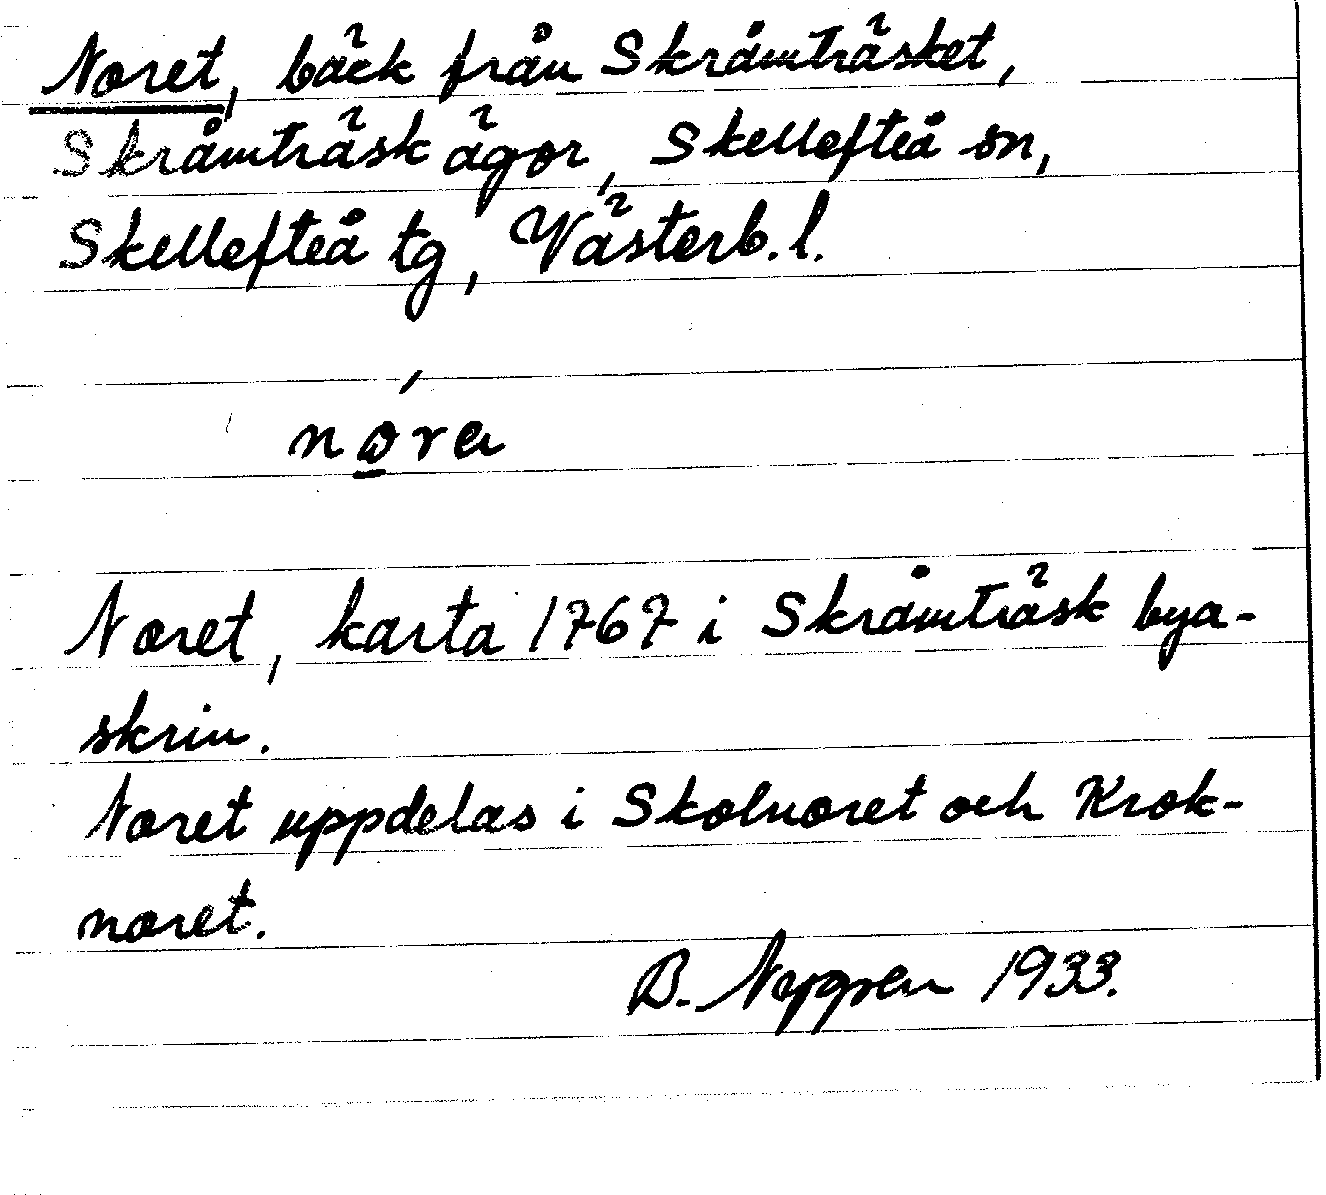 Noret, bäck från Skråmträsket,
Skråmträsk ägor, Skellefteå sn,
Skellefteå tg, Västerb. l.
Noret, karta 1767 i Skråmträsk bya-
skrin.
Noret uppdelas i Skolnoret och Krok-
noret.
B. Nygren 1933.